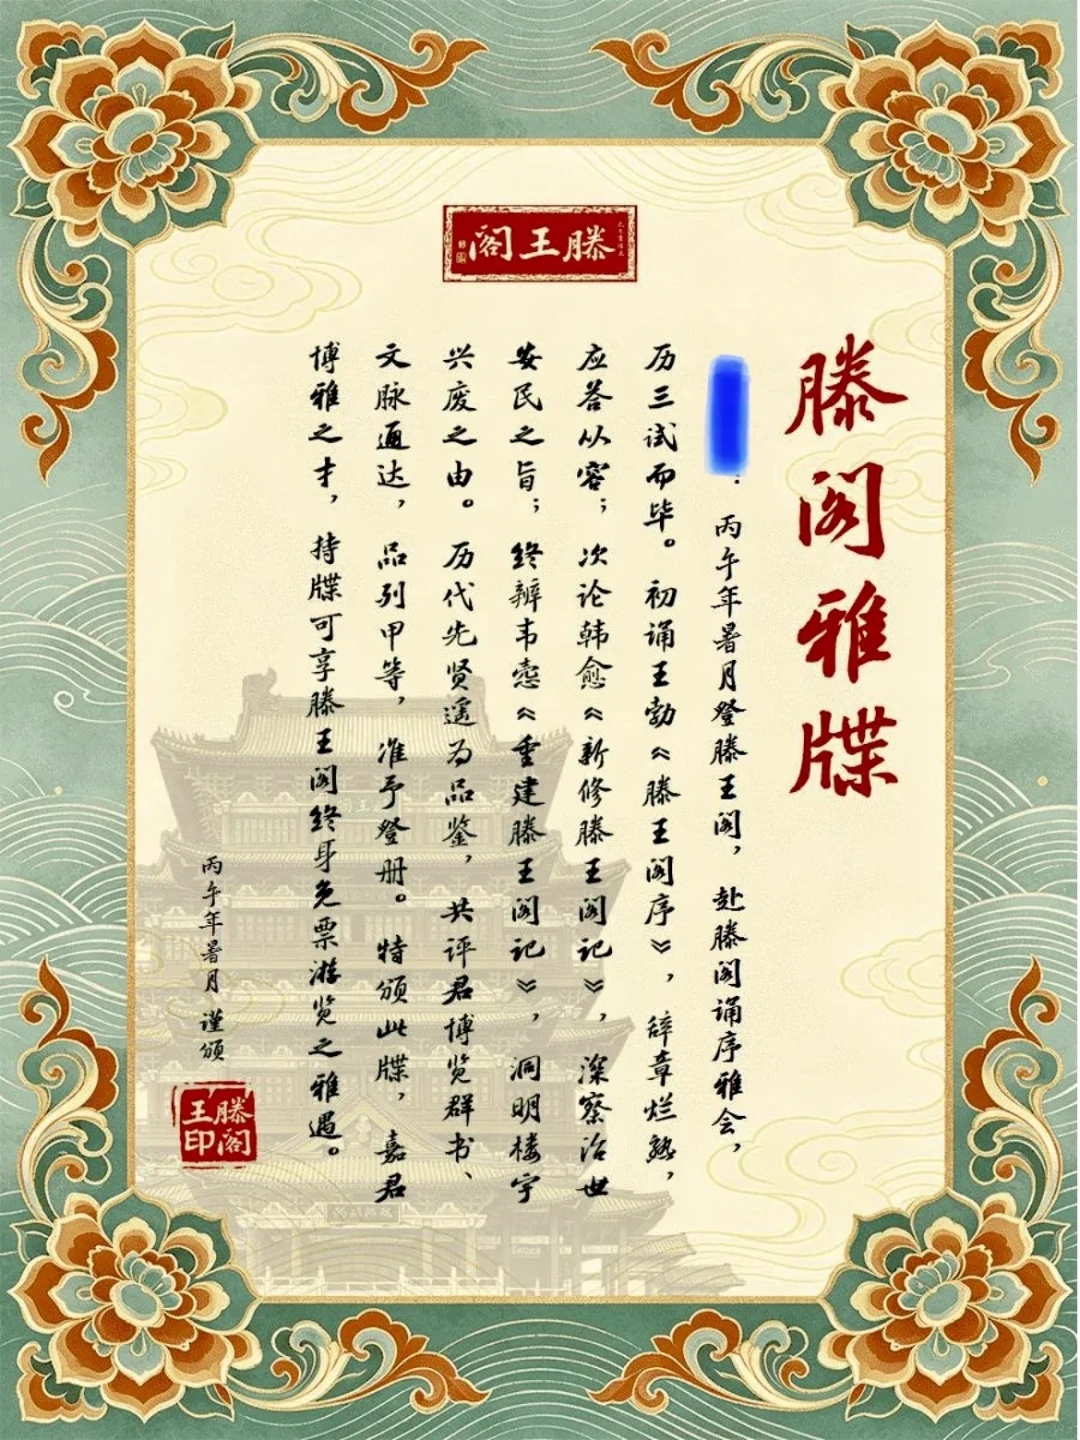 滕王阁
滕阁雅牒
：丙午年暑月登滕王阁，赴滕阁诵序雅会，
历三试而毕。初诵王勃《滕王阁序》，辞章烂熟，
应答从容；次论韩愈《新修滕王阁记》，深察治世
安民之旨；终辨韦悫《重建滕王阁记》，洞明楼宇
兴废之由。历代先贤遥为品鉴，共评君博览群书、
文脉通达，品列甲等，准予登册。特颁此牒，嘉君
博雅之才，持牒可享滕王阁终身免票游览之雅遇。
丙午年暑月 谨颁
滕王阁印